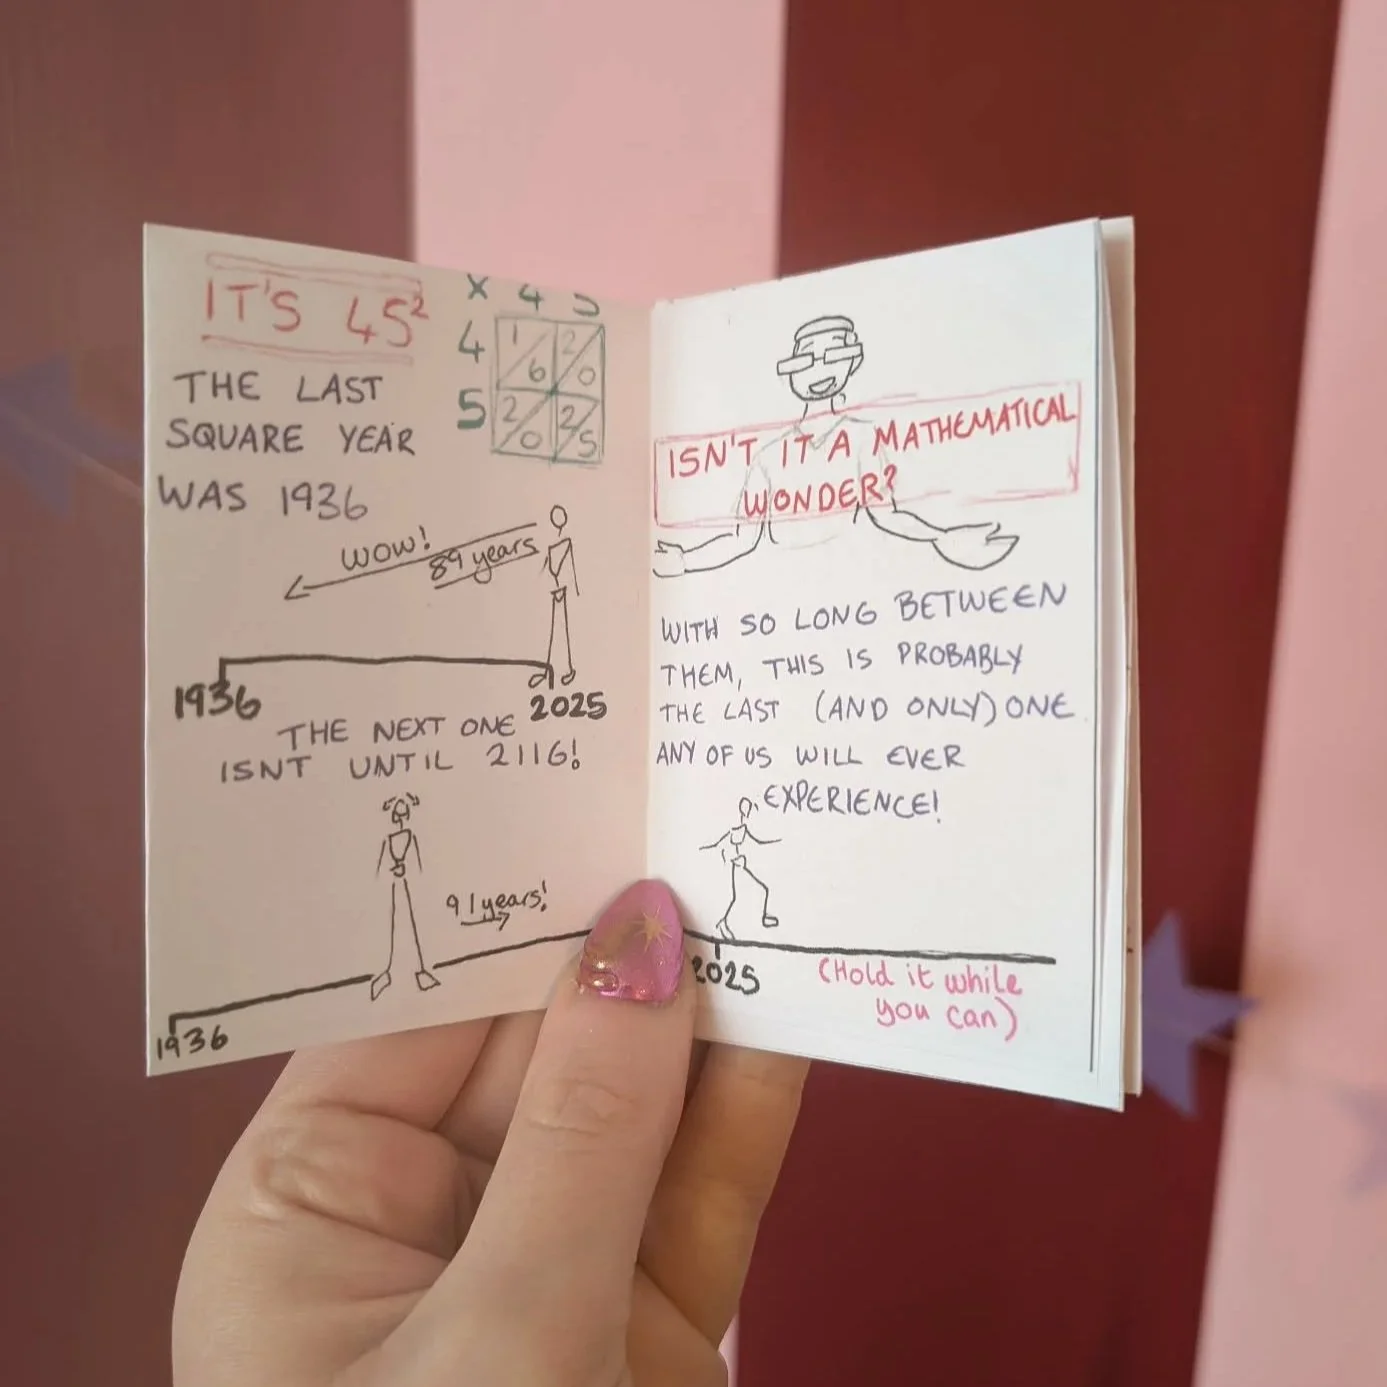 IT'S 45²
X 4 5
4 1 6 2 0
5 2 0 2 5
THE LAST
SQUARE YEAR
WAS 1936
WOW!
89 years
1936
2025
THE NEXT ONE
ISNT UNTIL 2116!
91 years!
1936
ISN'T IT A MATHEMATICAL
WONDER?
WITH SO LONG BETWEEN
THEM, THIS IS PROBABLY
THE LAST (AND ONLY) ONE
ANY OF US WILL EVER
EXPERIENCE!
2025
(Hold it while
you can)